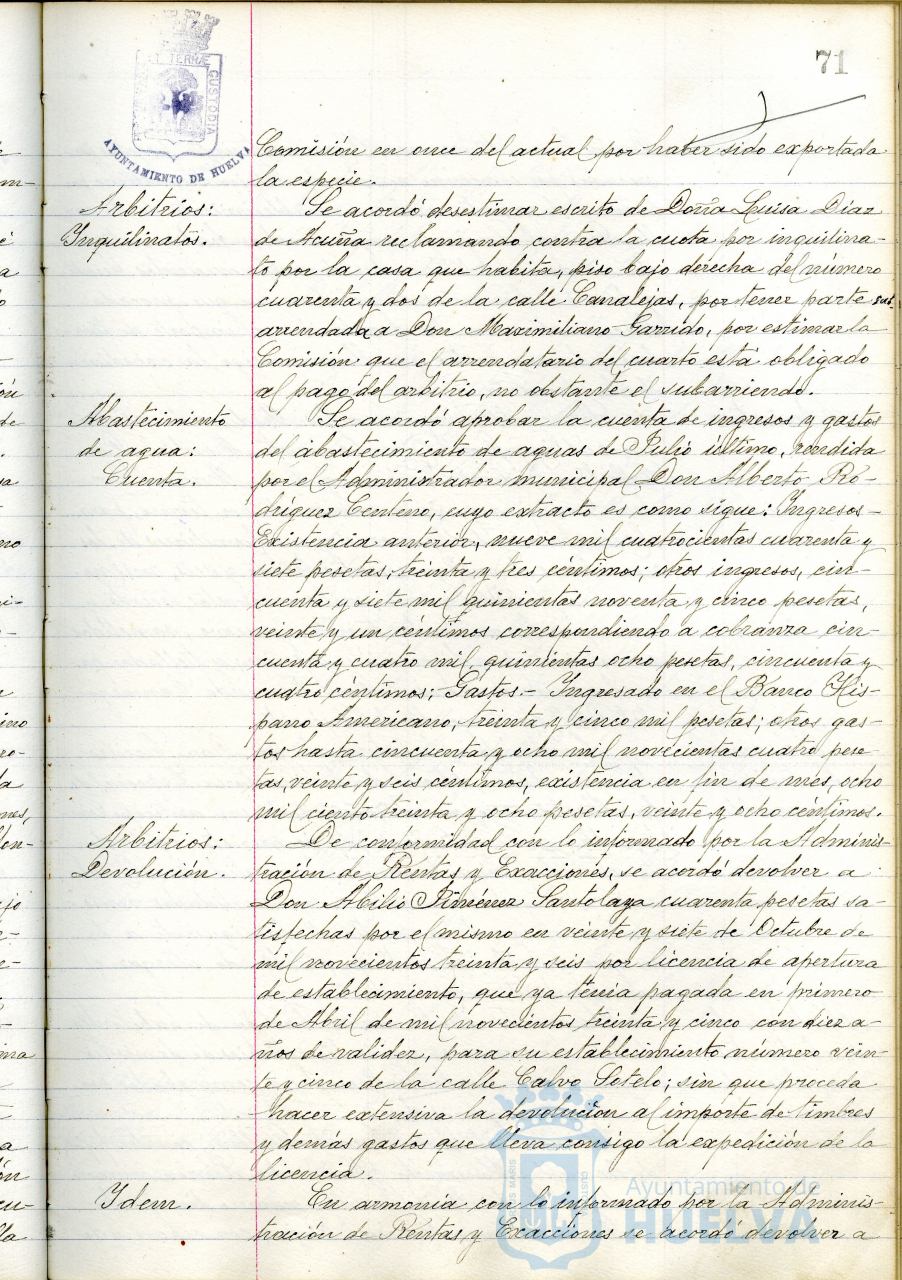 71
TERRÆ
CUSTODIA
AYUNTAMIENTO DE HUELVA
Comisión en once del actual por haber sido exportada
la especie.
Arbitrios:
Inquilinatos.
Se acordó desestimar escrito de Doña Luisa Díaz
de Acuña reclamando contra la cuota por inquilina-
to por la casa que habita, piso bajo derecha del número
cuarenta y dos de la calle Canalejas, por tener parte sub
arrendada a Don Maximiliano Garrido, por estimar la
Comisión que el arrendatario del cuarto está obligado
al pago del arbitrio, no obstante el subarriendo.
Abastecimiento
de agua:
Cuenta.
Se acordó aprobar la cuenta de ingresos y gastos
del abastecimiento de aguas de Julio último, rendida
por el Administrador municipal Don Alberto Ro-
dríguez Centeno, cuyo extracto es como sigue: Ingresos-
Existencia anterior, nueve mil cuatrocientas cuarenta y
siete pesetas, treinta y tres céntimos; otros ingresos, cin-
cuenta y siete mil quinientas noventa y cinco pesetas,
veinte y un céntimos correspondiendo a cobranza cin-
cuenta y cuatro mil, quinientas ocho pesetas, cincuenta y
cuatro céntimos; Gastos.- Ingresado en el Banco His-
pano Americano, treinta y cinco mil pesetas; otros gas-
tos hasta cincuenta y ocho mil novecientas cuatro pese
tas, veinte y seis céntimos, existencia en fin de mes, ocho
mil ciento treinta y ocho pesetas, veinte y ocho céntimos.
Arbitrios:
Devolución.
De conformidad con lo informado por la Adminis-
tración de Rentas y Exacciones, se acordó devolver a
Don Abilio Jiménez Santolaya cuarenta pesetas sa-
tisfechas por el mismo en veinte y siete de Octubre de
mil novecientos treinta y seis por licencia de apertura
de establecimiento, que ya tenía pagada en primero
de Abril de mil novecientos treinta y cinco con diez a-
ños de validez, para su establecimiento número vein-
te y cinco de la calle Calvo Sotelo; sin que proceda
hacer extensiva la devolución al importe de timbres
y demás gastos que lleva consigo la expedición de la
licencia.
Idem.
En armonía con lo informado por la Adminis-
tración de Rentas y Exacciones se acordó devolver a
Ayuntamiento de
HUELVA